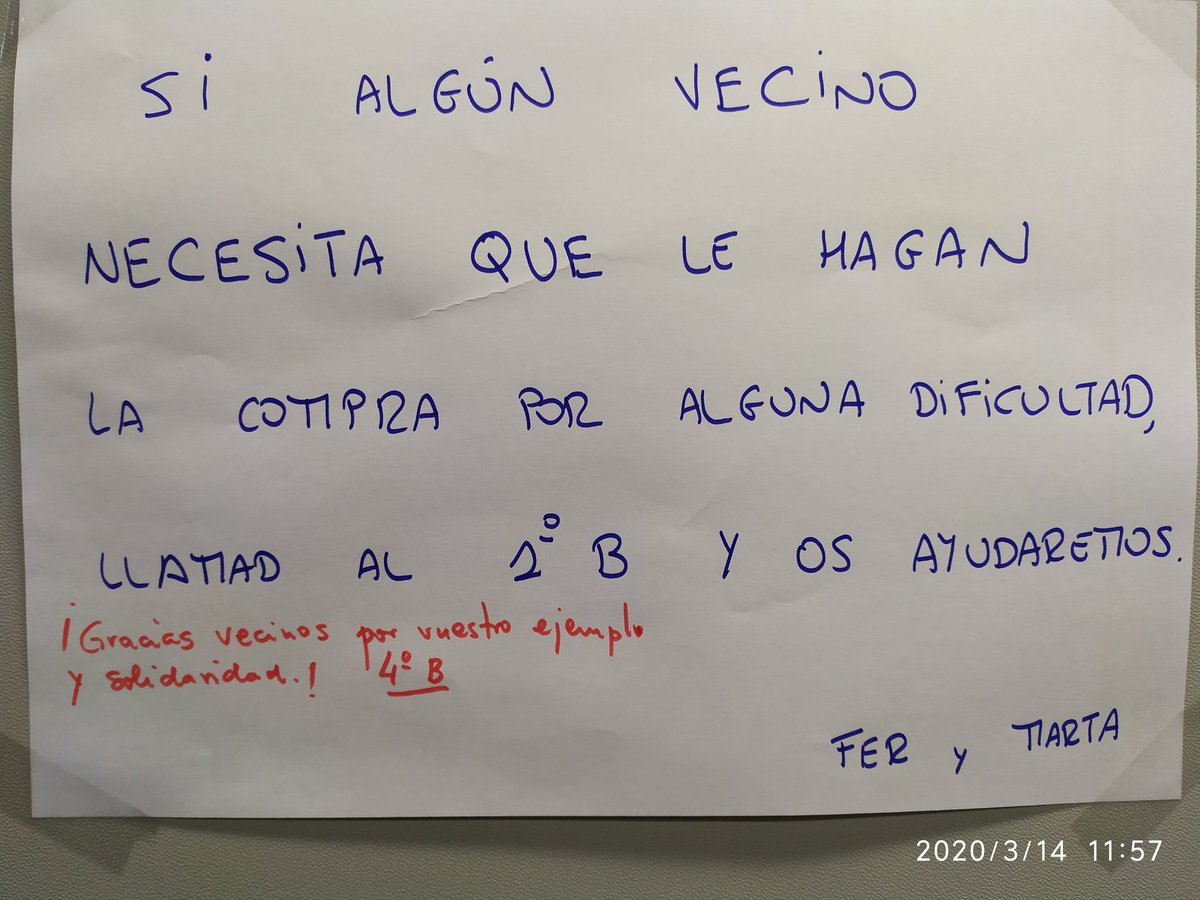 Si ALGÚN VECiNO
NECESiTA QUE LE HAGAN
LA COMPRA POR ALGUNA DiFiCULTAD,
LLAMAD AL 2º B Y OS AYUDAREMOS.
¡Gracias vecinos por vuestro ejemplo
y solidaridad.! 4º B
FER y MARTA
2020/3/14 11:57